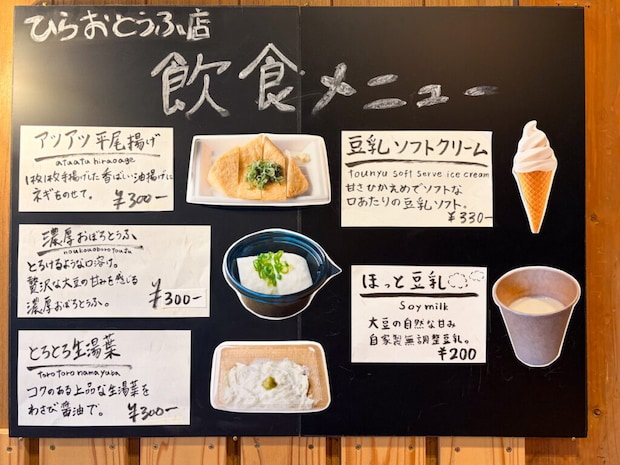 ひらおとうふ店
飲食メニュー
アツアツ平尾揚げ
atuatu hiraoage
1枚1枚手揚げした香ばしい油揚げに
ネギをのせて。 ¥300-
濃厚おぼろとうふ
noukouoborotoufu
とろけるような口溶け。
贅沢な大豆の甘みを感じる
濃厚おぼろとうふ。 ¥300-
とろとろ生湯葉
torotoro namayuba
コクのある上品な生湯葉を
わさび醤油で。 ¥300-
豆乳ソフトクリーム
tounyu soft serve ice cream
甘さひかえめでソフトな
口あたりの豆乳ソフト。
¥330-
ほっと豆乳
Soymilk
大豆の自然な甘み
自家製無調整豆乳。
¥200